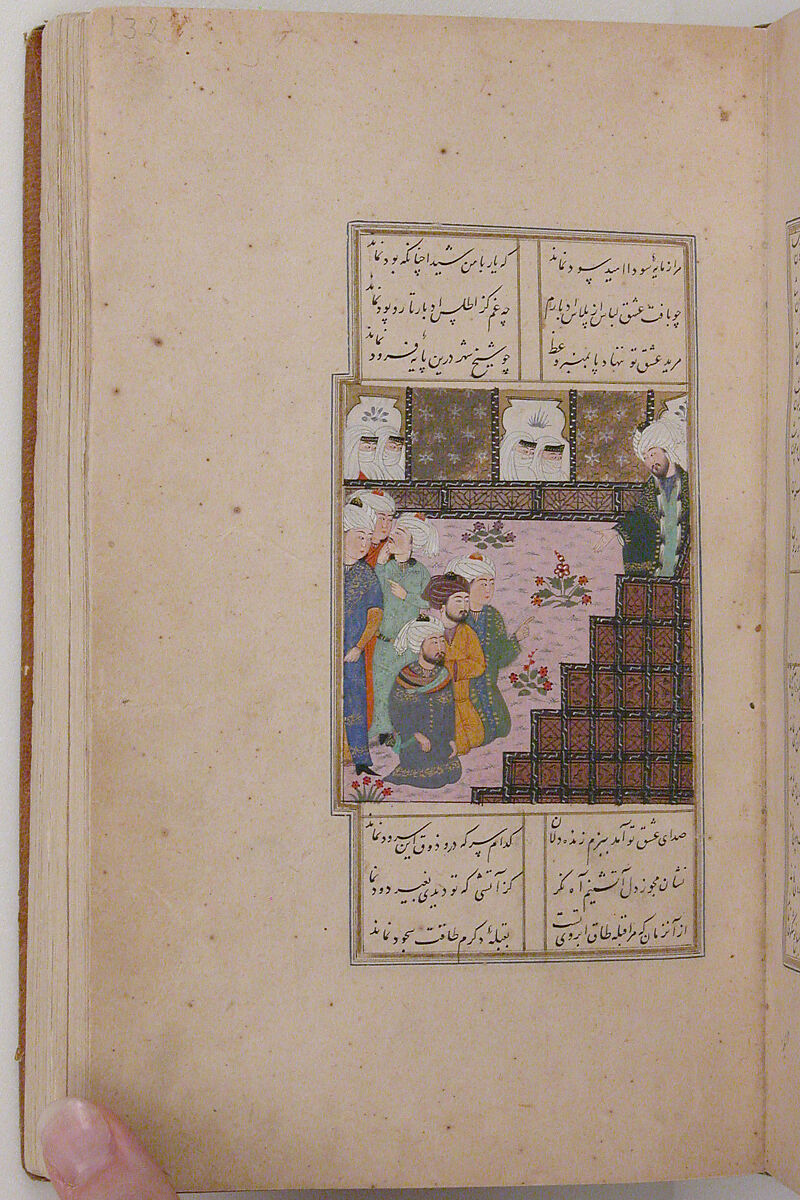 132
مرا ز مایه سودا امید سود نماند
که یار با من شیدا چنانکه بود نماند
چو بافت عشق لباس از پلاس ادبارم
چه غم کز اطلس ادبار تار و پود نماند
مرید عشق تو ننهاد پا بمنبر وعظ
چو شیخ شهر درین پایه فرود نماند
صدای عشق تو آمد ببزم زنده دلان
کدام سر که درو ذوق این سرود نماند
نشان مجوز دل آتشینم آه نکر
کز آتشی که تو دیدی بغیر دود نماند
از آنزمان که مرا قبله طاق ابروی تست
بقبله دکرم طاقت سجود نماند